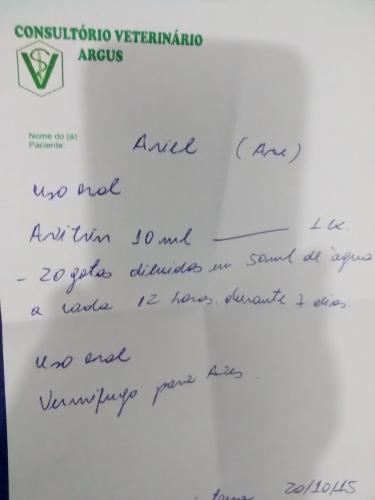 CONSULTÓRIO VETERINÁRIO
ARGUS
V
Nome do (a)
Paciente:
Ariel (Ave)
uso oral
Avitrin 10 ml 1 cx.
- 20 gotas diluidos em 50 ml de água
a cada 12 horas durante 7 dias.
uso oral
Vermífugo para Aves.
20/10/15